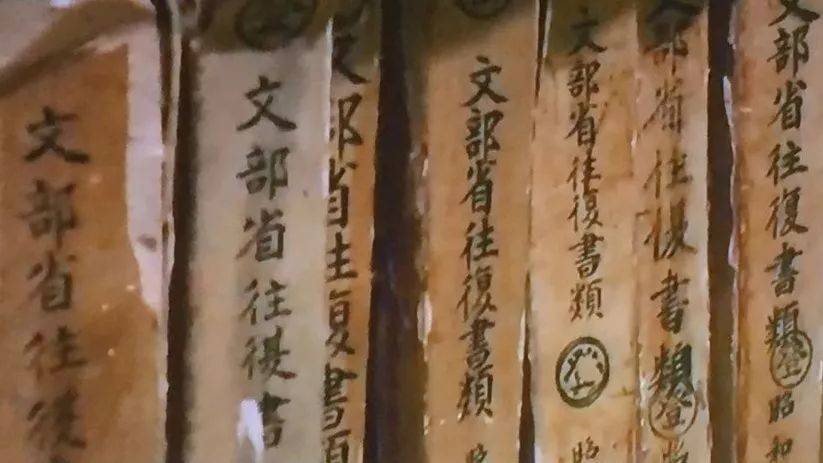 文部省往復書類 昭和
文部省往復書類
文部省往復書類 昭
文部省往復書類
文部省往復書類
文部省往復書
文部省往復